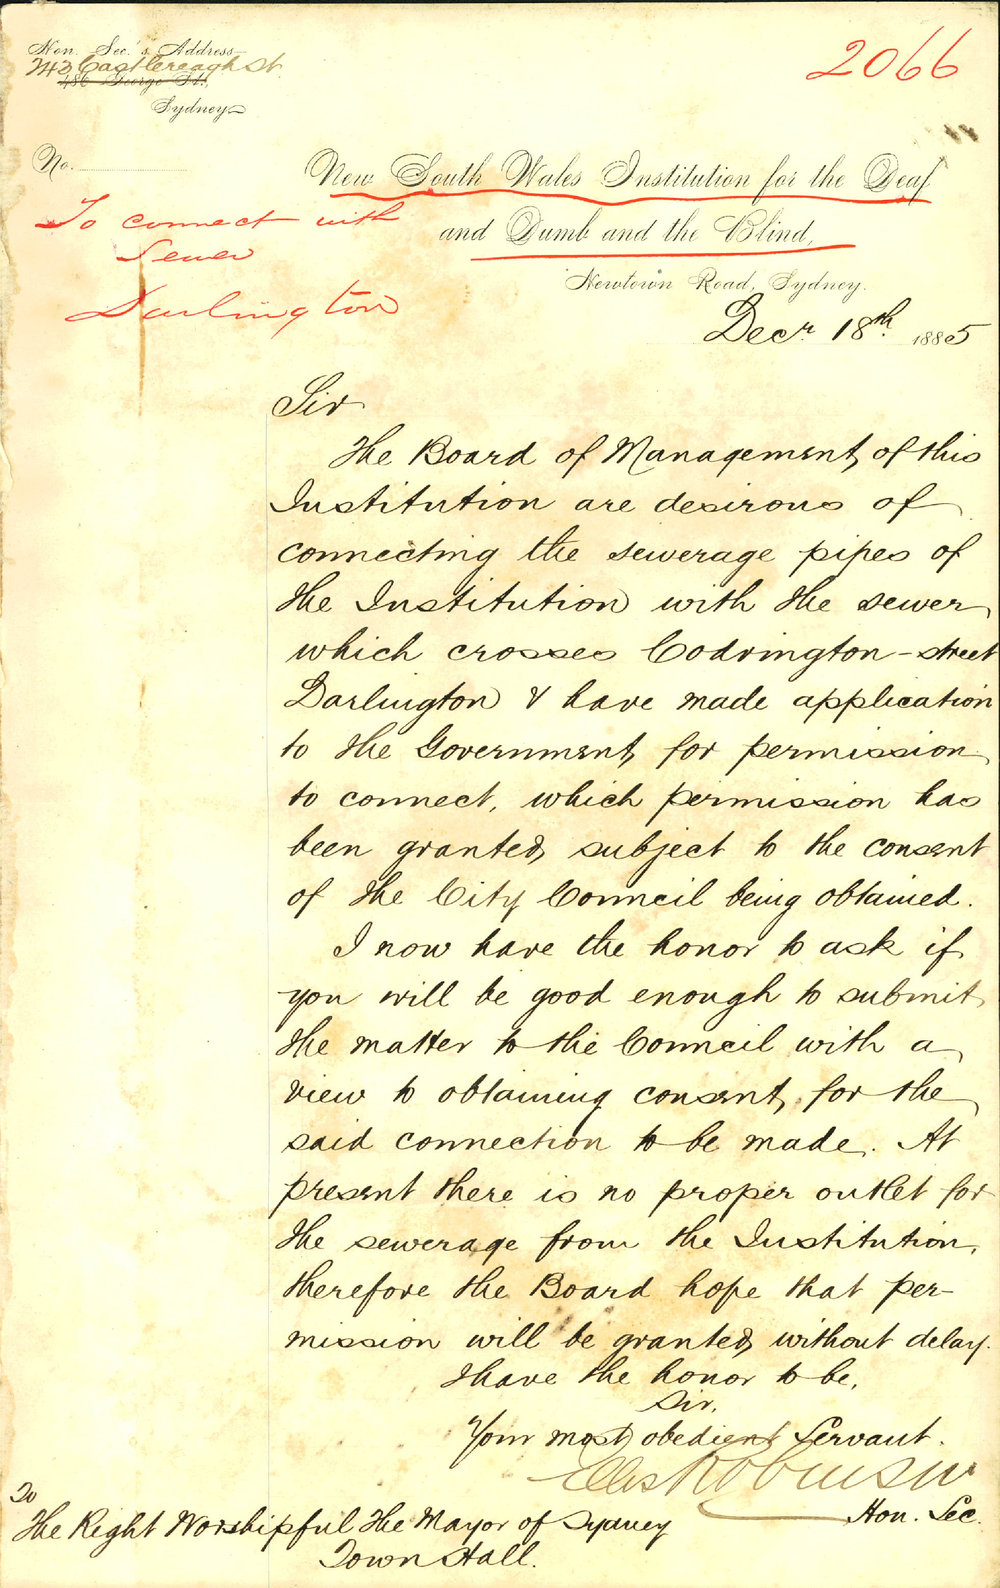 Hon. Sec.'s Address
243 Castlereagh St
486 George St.,
Sydney
2066
No.
New South Wales Institution for the Deaf
and Dumb and the Blind,
To connect with
Sewer
Darlington
Newtown Road, Sydney.
Decr 18th 1885
Sir
The Board of Management of this
Institution are desirous of
connecting the sewerage pipes of
the Institution with the sewer
which crosses Codrington-street
Darlington & have made application
to the Government for permission
to connect, which permission has
been granted, subject to the consent
of the City Council being obtained.
I now have the honor to ask if
you will be good enough to submit
the matter to the Council with a
view to obtaining consent, for the
said connection to be made. At
present there is no proper outlet for
the sewerage from the Institution,
therefore the Board hope that per-
mission will be granted, without delay.
I have the honor to be,
Sir,
Your most obedient Servant.
Ellis Robinson
Hon. Sec.
To
The Right Worshipful The Mayor of Sydney
Town Hall.